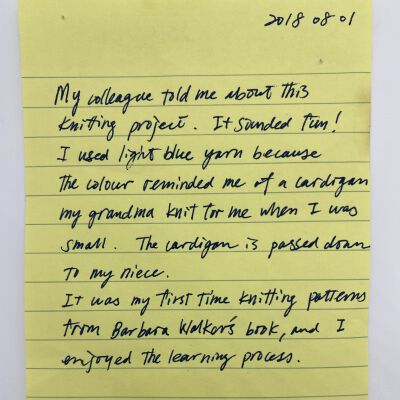 2018 08 01
My colleague told me about this
knitting project. It sounded fun!
I used light blue yarn because
the colour reminded me of a cardigan
my grandma knit for me when I was
small. The cardigan is passed down
to my niece.
It was my first time knitting patterns
from Barbara Walker's book, and I
enjoyed the learning process.